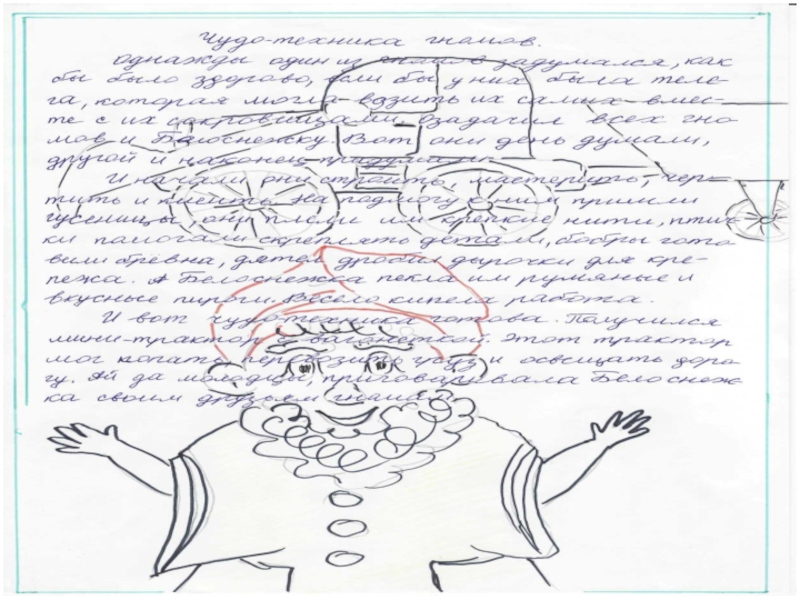 Чудо-техника гномов.
Однажды один из гномов задумался, как
бы было здорово, если бы у них была теле-
га, которая могла возить их самих вмес-
те с их сокровищами. Озадачил всех гно
мов и Белоснежку. Вот они день думали,
другой и наконец придумали.
И начали они строить, мастерить, чер-
тить и клеить. На подмогу к ним пришли
гусеницы, они плели им крепкие нити, птич-
ки помогали скреплять детали, бобры гото
вили бревна, дятел дробил дырочки для кре-
пежа. А Белоснежка пекла им румяные и
вкусные пироги. Весело кипела работа.
И вот чудо-техника готова. Получился
мини-трактор с вагонеткой. Этот трактор
мог копать, перевозить груз и освещать доро
гу. Ай да молодцы, приговаривала Белоснеж
ка своим друзьям гномам.